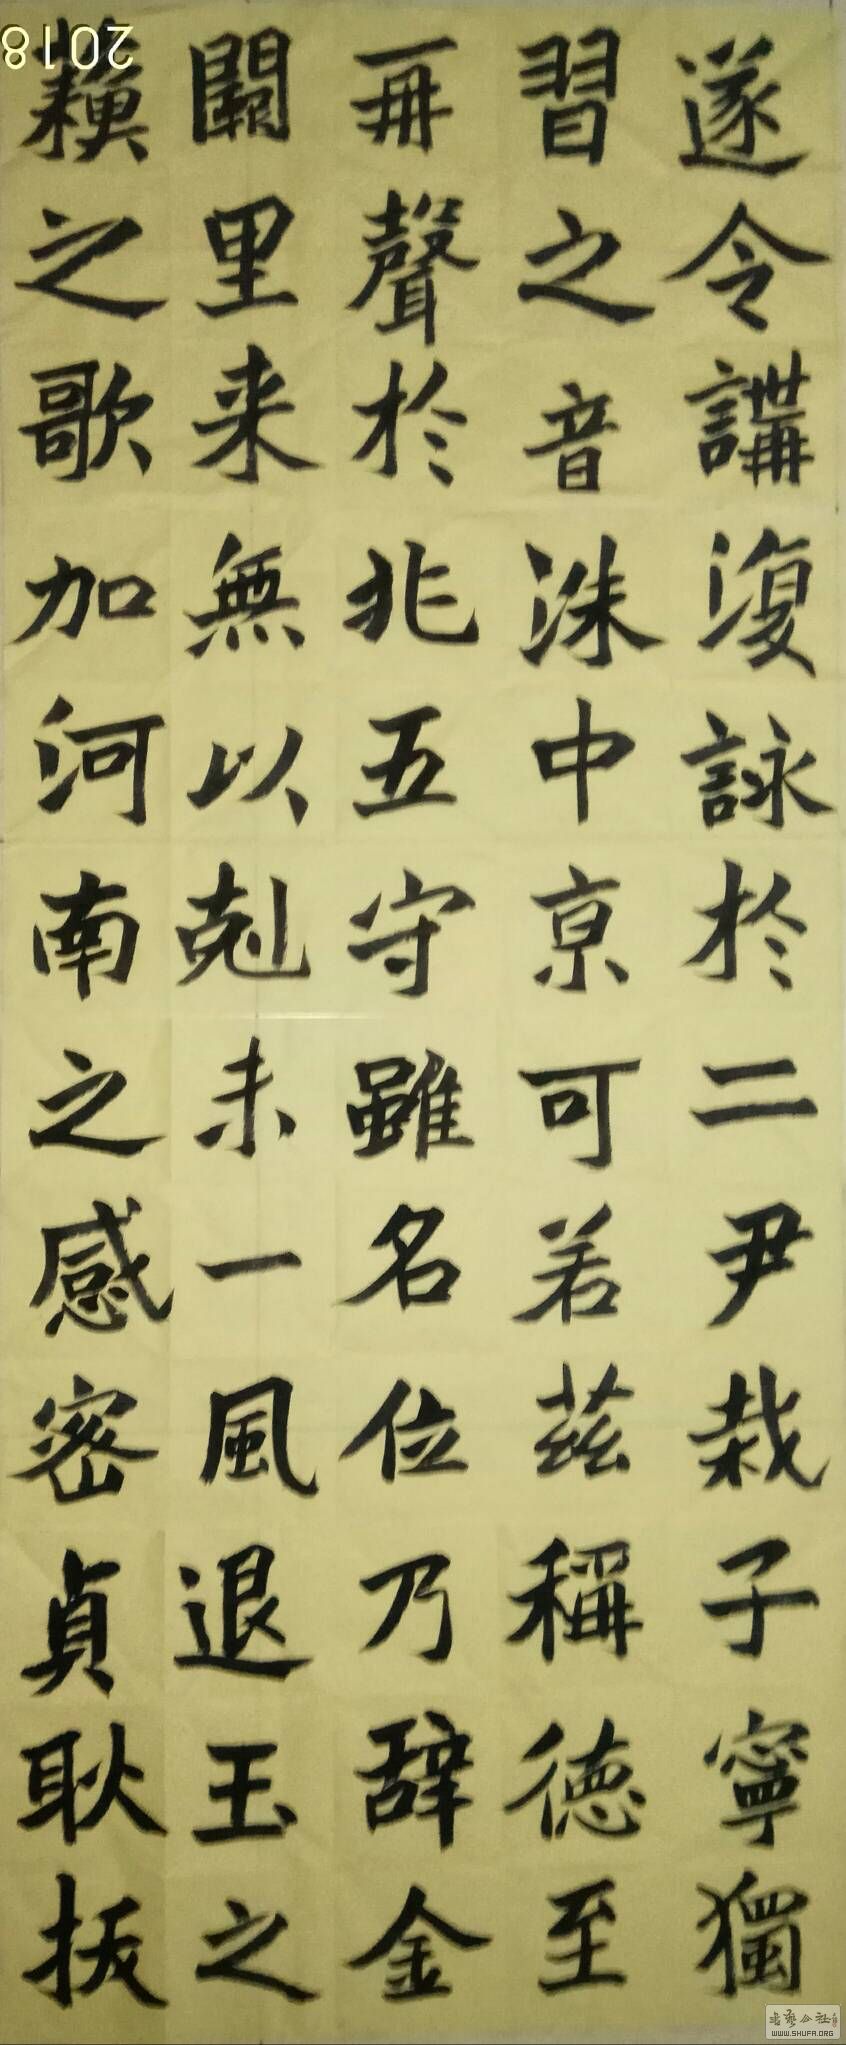 遂令講復詠於二尹栽子寧獨
習之音洙中京可若茲稱德至
再聲於兆五守雖名位乃辞金
闕里来無以剋未一風退玉之
之歌加河南之感密貞耿拔
2018
书艺公社
WWW.SHUFA.ORG